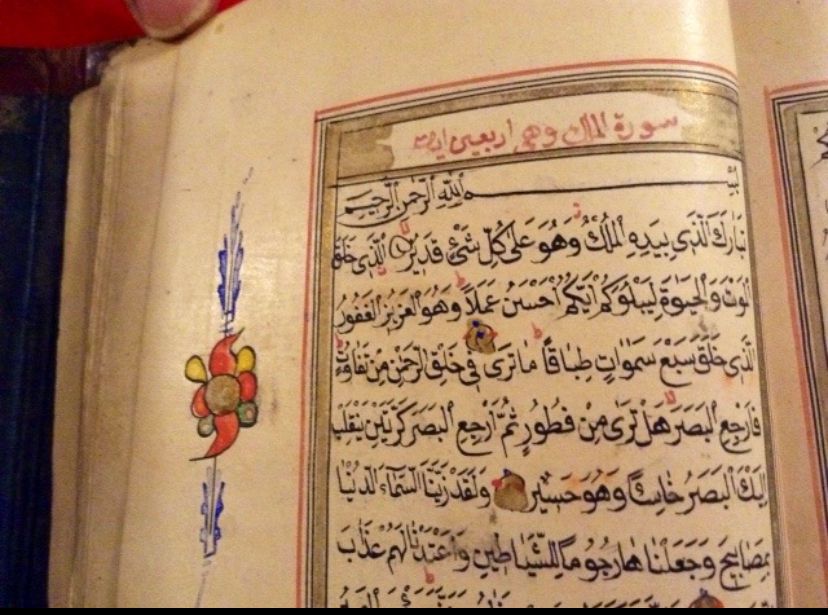 سورة الملك وهي اربعين ايه
بسم الله الرحمن الرحيم
تبارك الذي بيده الملك وهو على كل شئ قدير الذي خلق
الموت والحيوة ليبلوكم ايكم احسن عملا وهو العزيز الغفور
الذى خلق سبع سموات طباقا ما ترى في خلق الرحمن من تفاوت
فارجع البصر هل ترى من فطور ثم ارجع البصر كرتين ينقلب
اليك البصر خاسئا وهو حسير ولقد زينا السماء الدنيا
بمصابيح وجعلناها رجوما للشياطين واعتدنا لهم عذاب